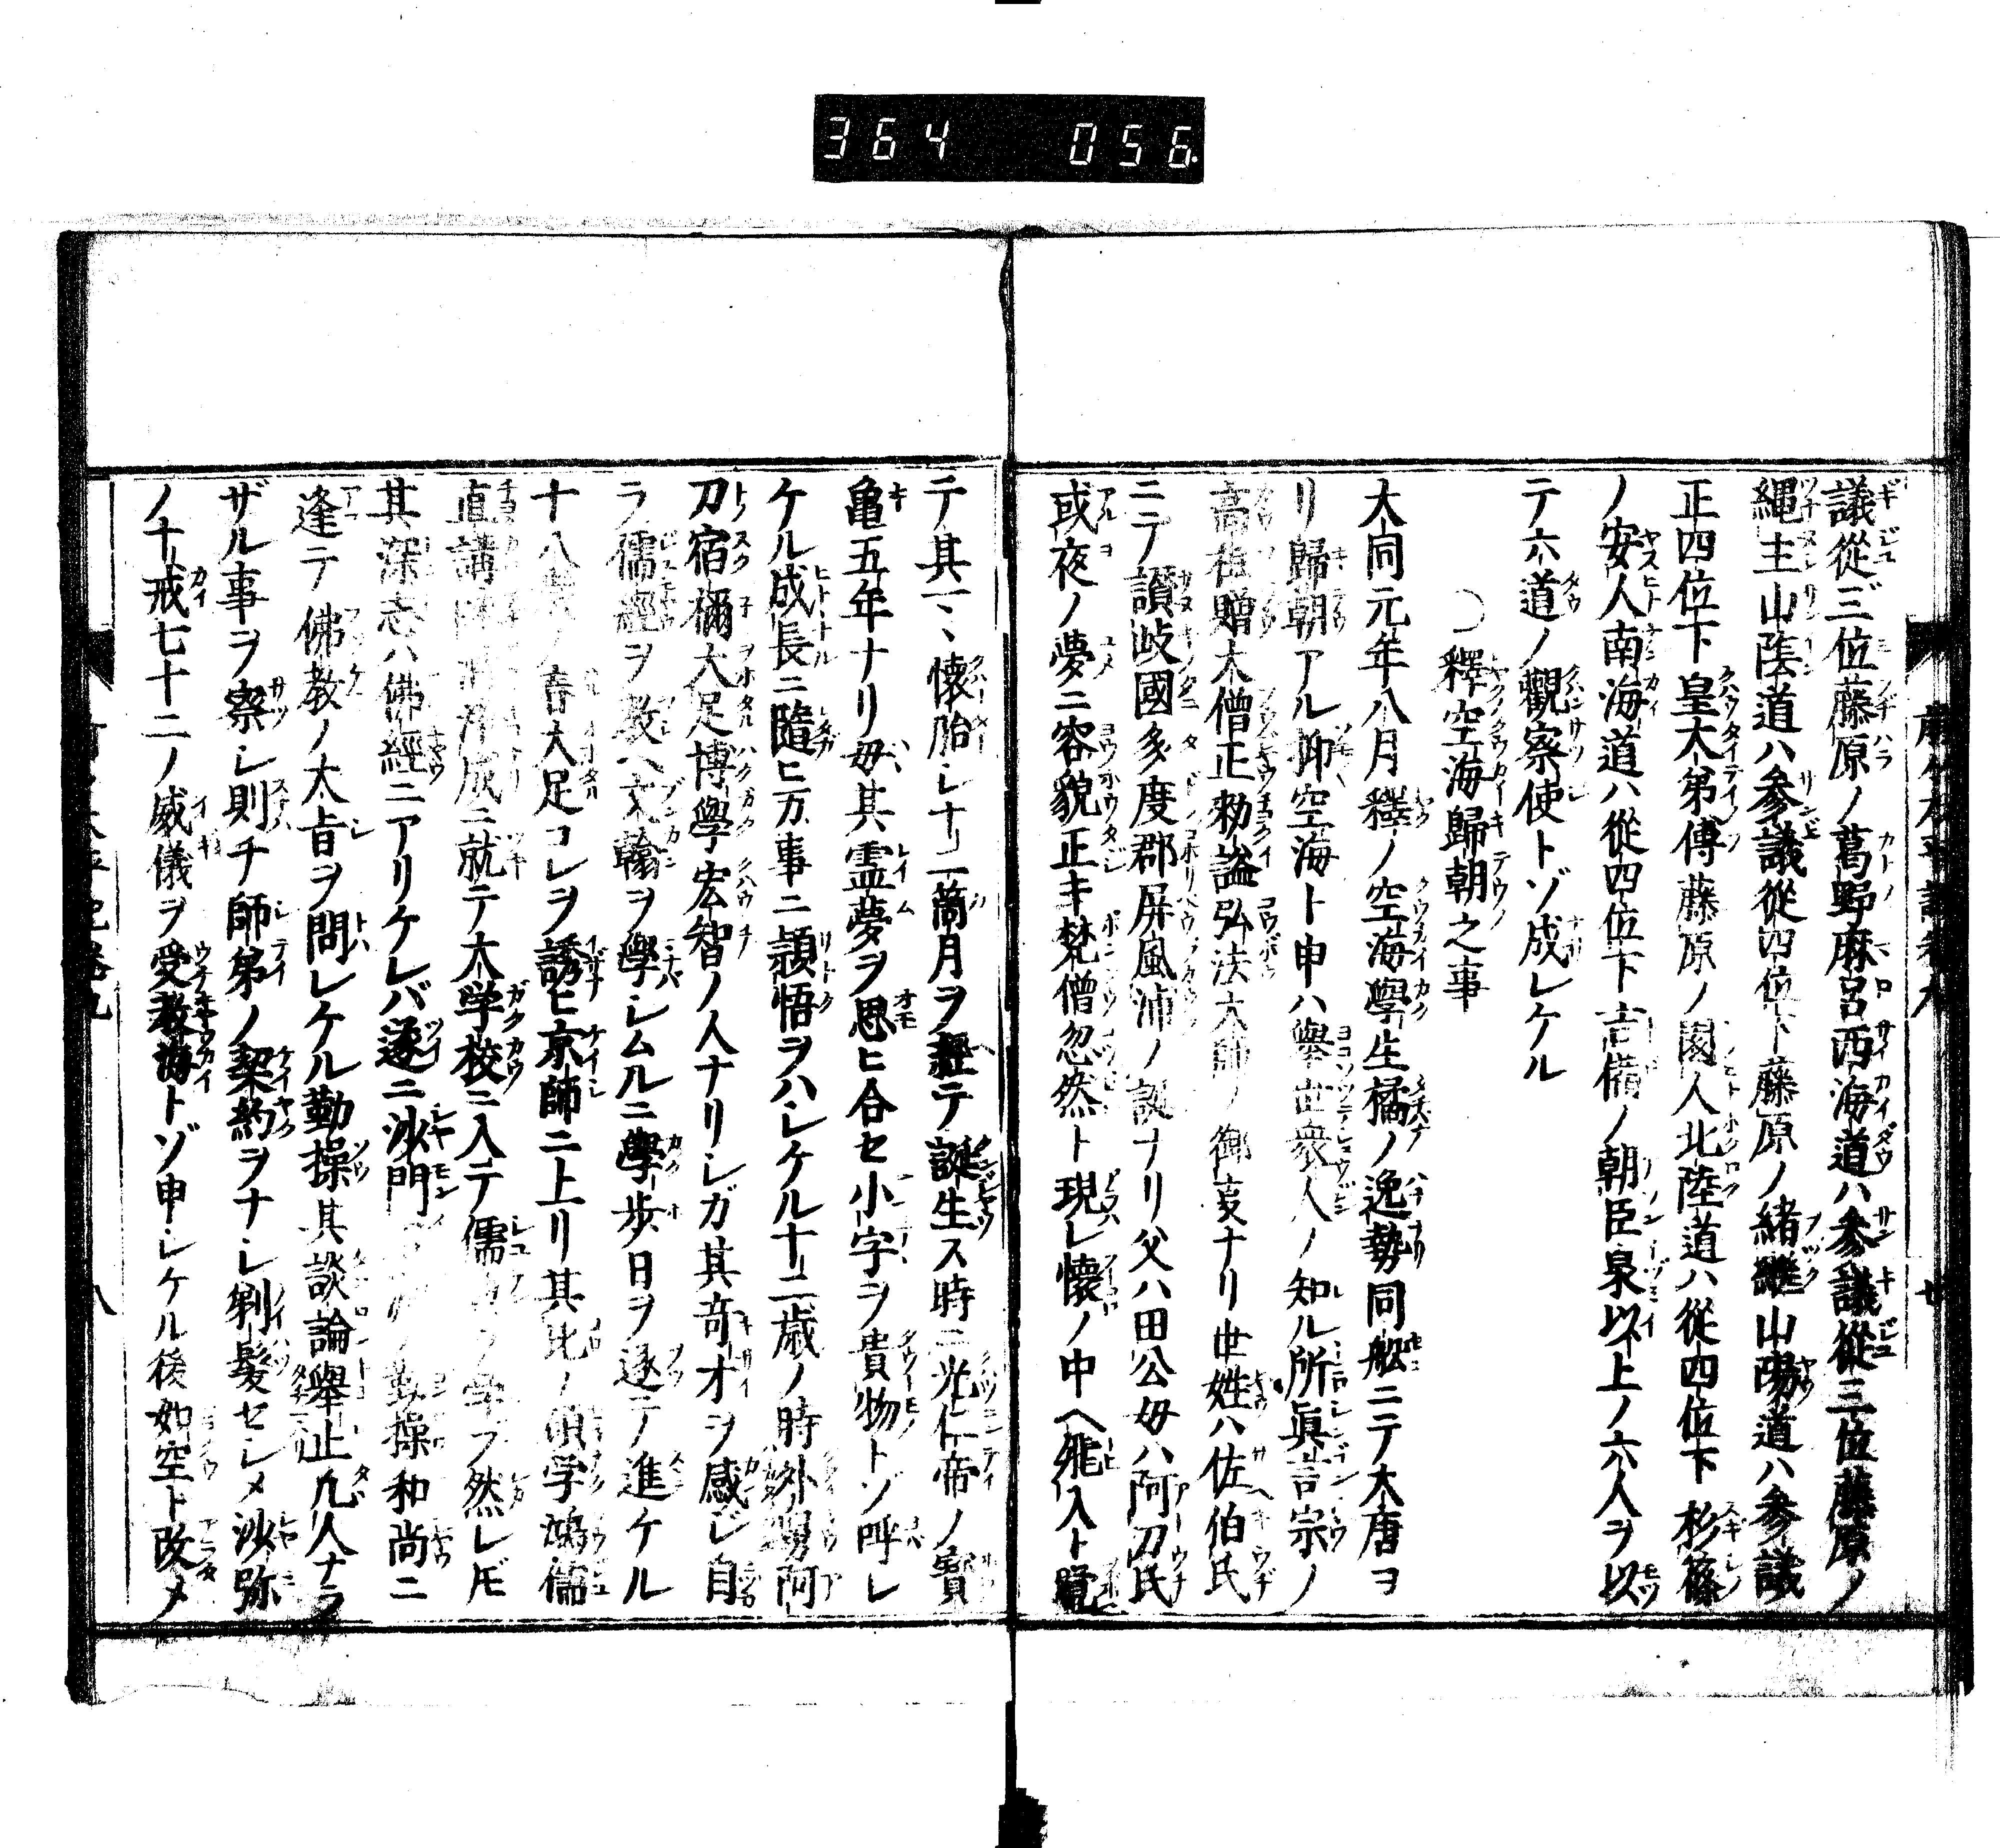 364 056
議從三位藤原ノ葛野麻呂西海道ハ參議從三位藤原ノ
縄主山陰道ハ參議從四位下藤原ノ緒繼山陽道ハ參議
正四位下皇太弟傅藤原ノ園人北陸道ハ從四位下杉篠
ノ安人南海道ハ從四位下吉備ノ朝臣泉以上ノ六人ヲ以
テ六道ノ觀察使トゾ成レケル
○釋空海歸朝之事
大同元年八月釋ノ空海學生橘ノ逸勢同舩ニテ大唐ヨ
リ歸朝アル抑空海ト申ハ舉世衆人ノ知ル所眞言宗ノ
高祖贈大僧正勅謚弘法大師ノ御叓ナリ世姓ハ佐伯氏
ニテ讃岐國多度郡屏風浦ノ誕ナリ父ハ田公母ハ阿刀氏
或夜ノ夢ニ容貌正キ梵僧忽然ト現レ懐ノ中ヘ飛入ト覺
テ其ヨリ懐胎シ十二箇月ヲ經テ誕生ス時ニ光仁帝ノ寳
亀五年ナリ母其霊夢ヲ思ヒ合セ小字ヲ貴物トゾ呼レ
ケル成長ニ隨ヒ万事ニ頴悟ヲハシケル十二歳ノ時外舅阿
刀宿禰大足博學宏智ノ人ナリシガ其奇才ヲ感ジ自
ラ儒經ヲ教ヘ文翰ヲ學シムルニ學歩日ヲ逐テ進ケル
十八歳ノ春大足コレヲ誘ヒ京師ニ上リ其比ノ碩学鴻儒
直講味酒浄成ニ就テ大学校ニ入テ儒 ヲ学フ然レ𪜈
其深志ハ佛經ニアリケレバ遂ニ沙門 ノ勤操和尚ニ
逢テ佛教ノ大旨ヲ問レケル勤操其談論舉止凡人ナラ
ザル事ヲ察シ則チ師弟ノ契約ヲナシ剃髮セシメ沙弥
ノ十戒七十二ノ威儀ヲ受教海トゾ申シケル後如空ト改メ
八